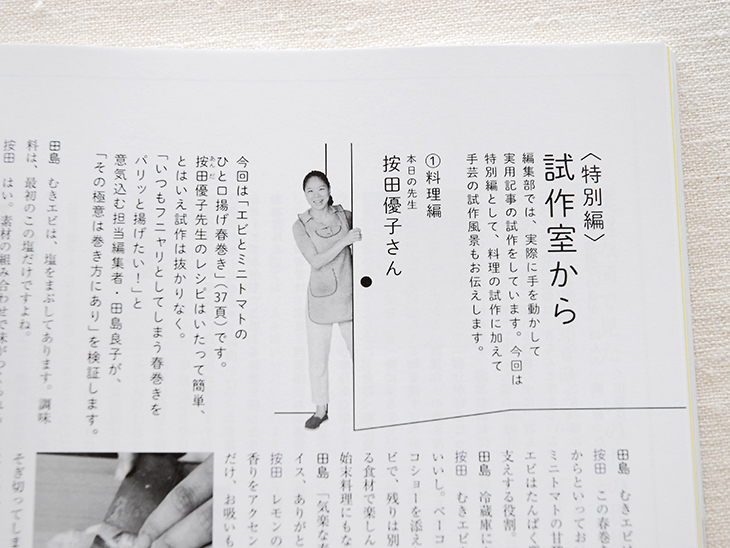 〈特別編〉
試作室から
編集部では、実際に手を動かして
実用記事の試作をしています。今回は
特別編として、料理の試作に加えて
手芸の試作風景もお伝えします。
①料理編
本日の先生
按田優子さん
今回は「エビとミニトマトの
ひと口揚げ春巻き」(37頁)です。
あんだ
按田優子先生のレシピはいたって簡単、
とはいえ試作は抜かりなく。
「いつもフニャリとしてしまう春巻きを
パリッと揚げたい!」と
意気込む担当編集者・田島良子が、
「その極意は巻き方にあり」を検証します。
田島 むきエビは、塩をまぶしてあります。調味
料は、最初のこの塩だけですよね。
按田 はい。素材の組み合わせで味が
田島 むきエビ
按田 この春巻
からといってお
ミニトマトの甘
エビはたんぱく
支えする役割。
田島 冷蔵庫に
按田 むきエビ
いいし。ベーコ
コショーを添え
ビで、残りは別
る食材で楽しん
始末料理にもな
田島 「気楽な
イス、ありがと
按田 レモンの
香りをアクセン
だけ、お吸いも
そぎ切ってしま